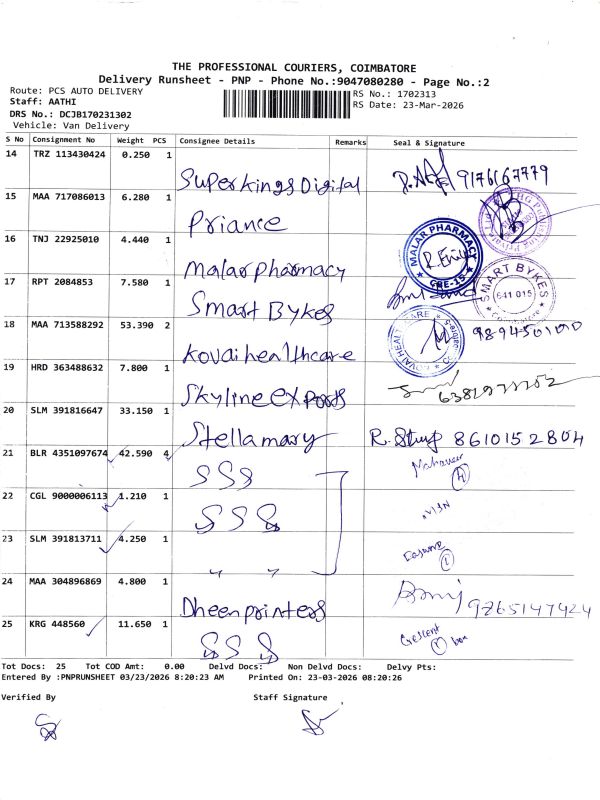 THE PROFESSIONAL COURIERS, COIMBATORE
Delivery Runsheet - PNP - Phone No.:9047080280 - Page No.:2
Route: PCS AUTO DELIVERY
RS No.: 1702313
Staff: AATHI
RS Date: 23-Mar-2026
DRS No.: DCJB170231302
Vehicle: Van Delivery
S No Consignment No Weight PCS Consignee Details Remarks Seal & Signature
14 TRZ 113430424 0.250 1 Superkings Digital 9176167779
15 MAA 717086013 6.280 1 Priance
16 TNJ 22925010 4.440 1 Malar pharmacy MALAR PHARMACY CBE-15
17 RPT 2084853 7.580 1 Smart Bykes SMART BYKES 641 015
18 MAA 713588292 53.390 2 Kovai healthcare
19 HRD 363488632 7.800 1 Skyline Exports
20 SLM 391816647 33.150 1 Stella mary 8610152804
21 BLR 4351097674 42.590 4 SSS
22 CGL 9000006113 1.210 1 SSS
23 SLM 391813711 4.250 1 " "
24 MAA 304896869 4.800 1 Dheen printers 9265147424
25 KRG 448560 11.650 1 SSS Crescent
Tot Docs: 25 Tot COD Amt: 0.00 Delvd Docs: Non Delvd Docs: Delvy Pts:
Entered By :PNPRUNSHEET 03/23/2026 8:20:23 AM Printed On: 23-03-2026 08:20:26
Verified By Staff Signature